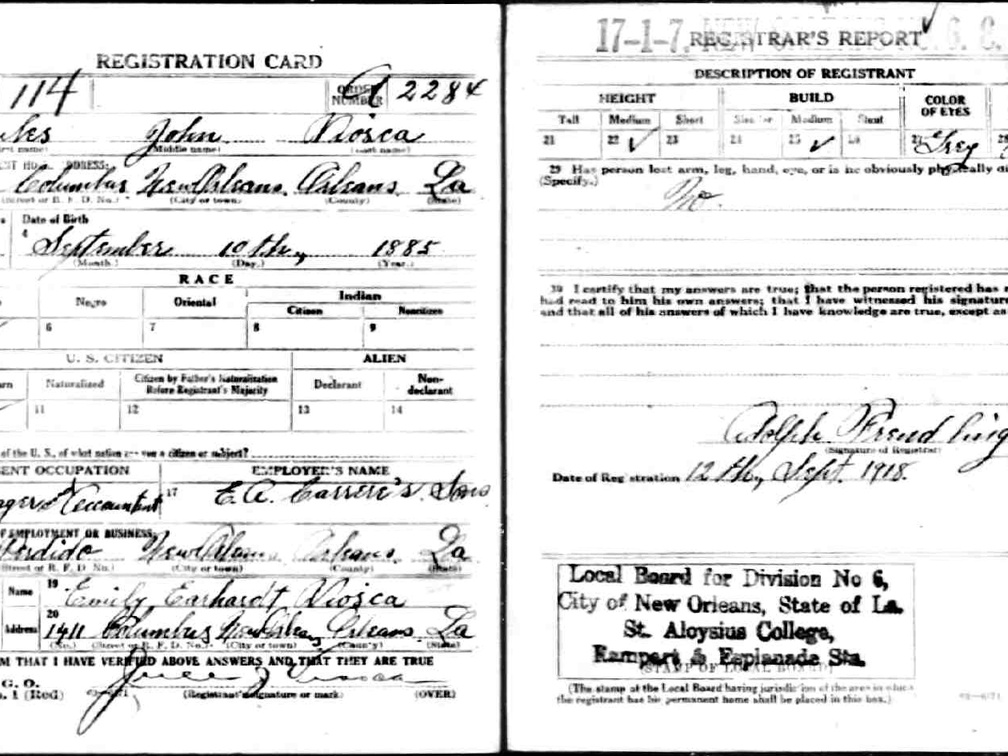 REGISTRATION CARD
114 ORDER NUMBER A 2284
John Viosca
(Middle name) (Last name)
Columbus New Orleans Orleans La
(Street or R. F. D. No.) (City or town) (County) (State)
Date of Birth
4 September 10th, 1885
(Month.) (Day.) (Year.)
RACE
Negro Oriental Indian
Citizen Noncitizen
6 7 8 9
U. S. CITIZEN ALIEN
Naturalized Citizen by Father's Naturalization Before Registrant's Majority Declarant Non-declarant
11 12 13 14
of the U. S., of what nation are you a citizen or subject?
ENT OCCUPATION EMPLOYER'S NAME
Accountant 17 E. A. Carrere's Sons
OF EMPLOYMENT OR BUSINESS:
Perdido New Orleans Orleans La
(Street or R. F. D. No.) (City or town) (County) (State)
Name 19 Emily Earhardt Viosca
Address 20 1411 Columbus New Orleans Orleans La
(No.) (Street or R. F. D. No.) (City or town) (County) (State)
M THAT I HAVE VERIFIED ABOVE ANSWERS AND THAT THEY ARE TRUE
G. O.
. 1 (Red) (Registrant's signature or mark) (OVER)
17-1-7
REGISTRAR'S REPORT
DESCRIPTION OF REGISTRANT
HEIGHT BUILD COLOR OF EYES
Tall Medium Short Slender Medium Stout
21 22 ✓ 23 24 25 ✓ 26 27 Grey 28
29 Has person lost arm, leg, hand, eye, or is he obviously physically di
(Specify.) No.
30 I certify that my answers are true; that the person registered has r
had read to him his own answers; that I have witnessed his signatur
and that all of his answers of which I have knowledge are true, except as
Adolph
(Signature of Registrar)
Date of Registration 12th, Sept. 1918.
Local Board for Division No 6,
City of New Orleans, State of La.
St. Aloysius College,
Rampart & Esplanade Sts.
(STAMP OF LOCAL BOARD)
(The stamp of the Local Board having jurisdiction of the area in which
the registrant has his permanent home shall be placed in this box.)